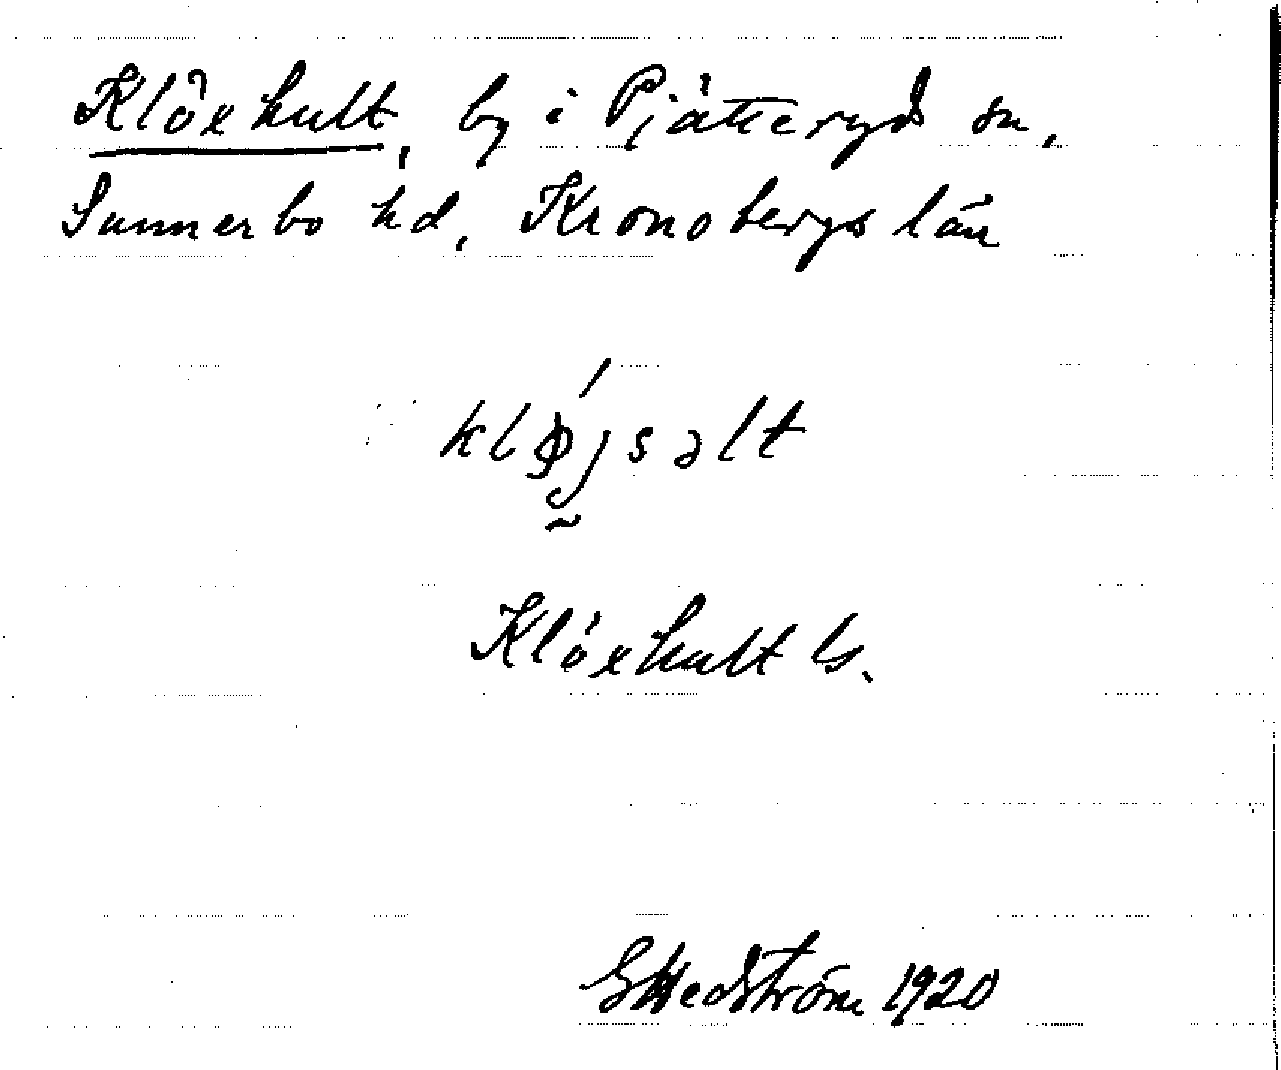 Klöxhult, by i Pjätteryd sn,
Sunnerbo hd, Kronobergs län
Klöxhult ls.
G Hedström 1920